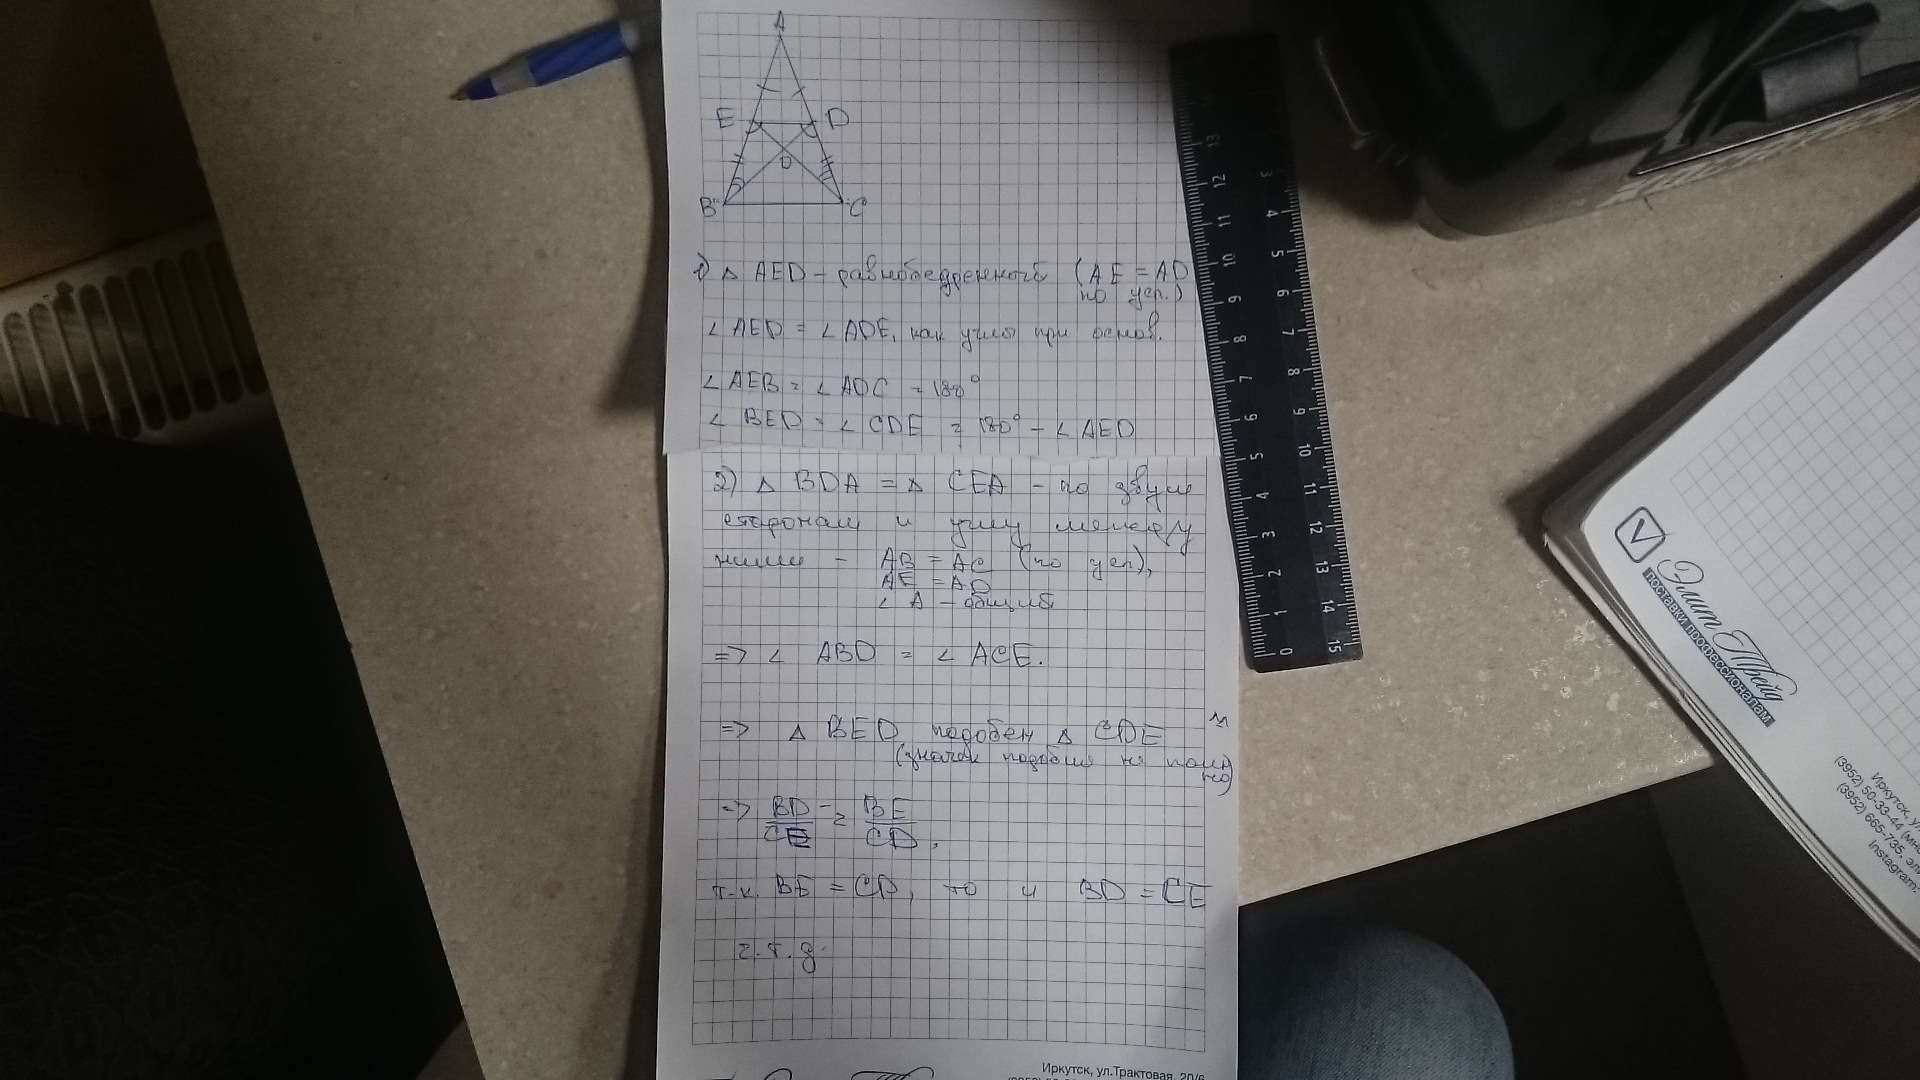 A
E D
O
B C
1) △ AED – равнобедренный (AE = AD
по усл.)
∠ AED = ∠ ADE, как углы при основ.
∠ AEB = ∠ ADC = 180°
∠ BED = ∠ CDE = 180° – ∠ AED
2) △ BDA = △ CEA – по двум
сторонам и углу между
ними – AB = AC (по усл),
AE = AD
∠ A – общий
=> ∠ ABD = ∠ ACE.
=> △ BED подобен △ CDE
(значок подобия не помню)
=> BD/CE = BE/CD,
т.к. BE = CD, то и BD = CE
ч.т.д.
Иркутск, ул.Трактовая, 20/6
13 12 11 10 9 8 7 6 5 4 3 2 1 0
3 4 5 6 7 8 9 10 11 12 13 14 15
Элит Трейд
поставки профессионалам
Иркутск, ул
(3952) 50-33-44
(3952) 665-735,
Instagram: